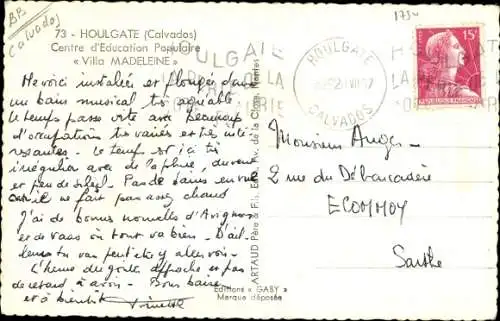 BP
Calvados
1734
73 - HOULGATE (Calvados)
Centre d'Education Populaire
« Villa MADELEINE »
HOULGATE
CALVADOS
15F
Me voici installée et plongée dans
un bain musical très agréable.
Le temps passe vite avec beaucoup
d'occupations très variées et très inté-
ressantes. Le temps est ici très
irrégulier avec de la pluie, du vent
et peu de soleil. Pas de bains en vue
car il ne fait pas assez chaud
J'ai de bonnes nouvelles d'Avignon
et de vous où tout va bien. D'ail-
leurs tu vas peut-être y aller voir.
L'heure du goûter approche et pas
de retard à avoir. Bons baisers
et à bientôt
Monsieur Auger
2 rue du Débarcadère
ECOMMOY
Sarthe
ARTAUD Père & Fils, Edit.
Editions « GABY »
Marque déposée